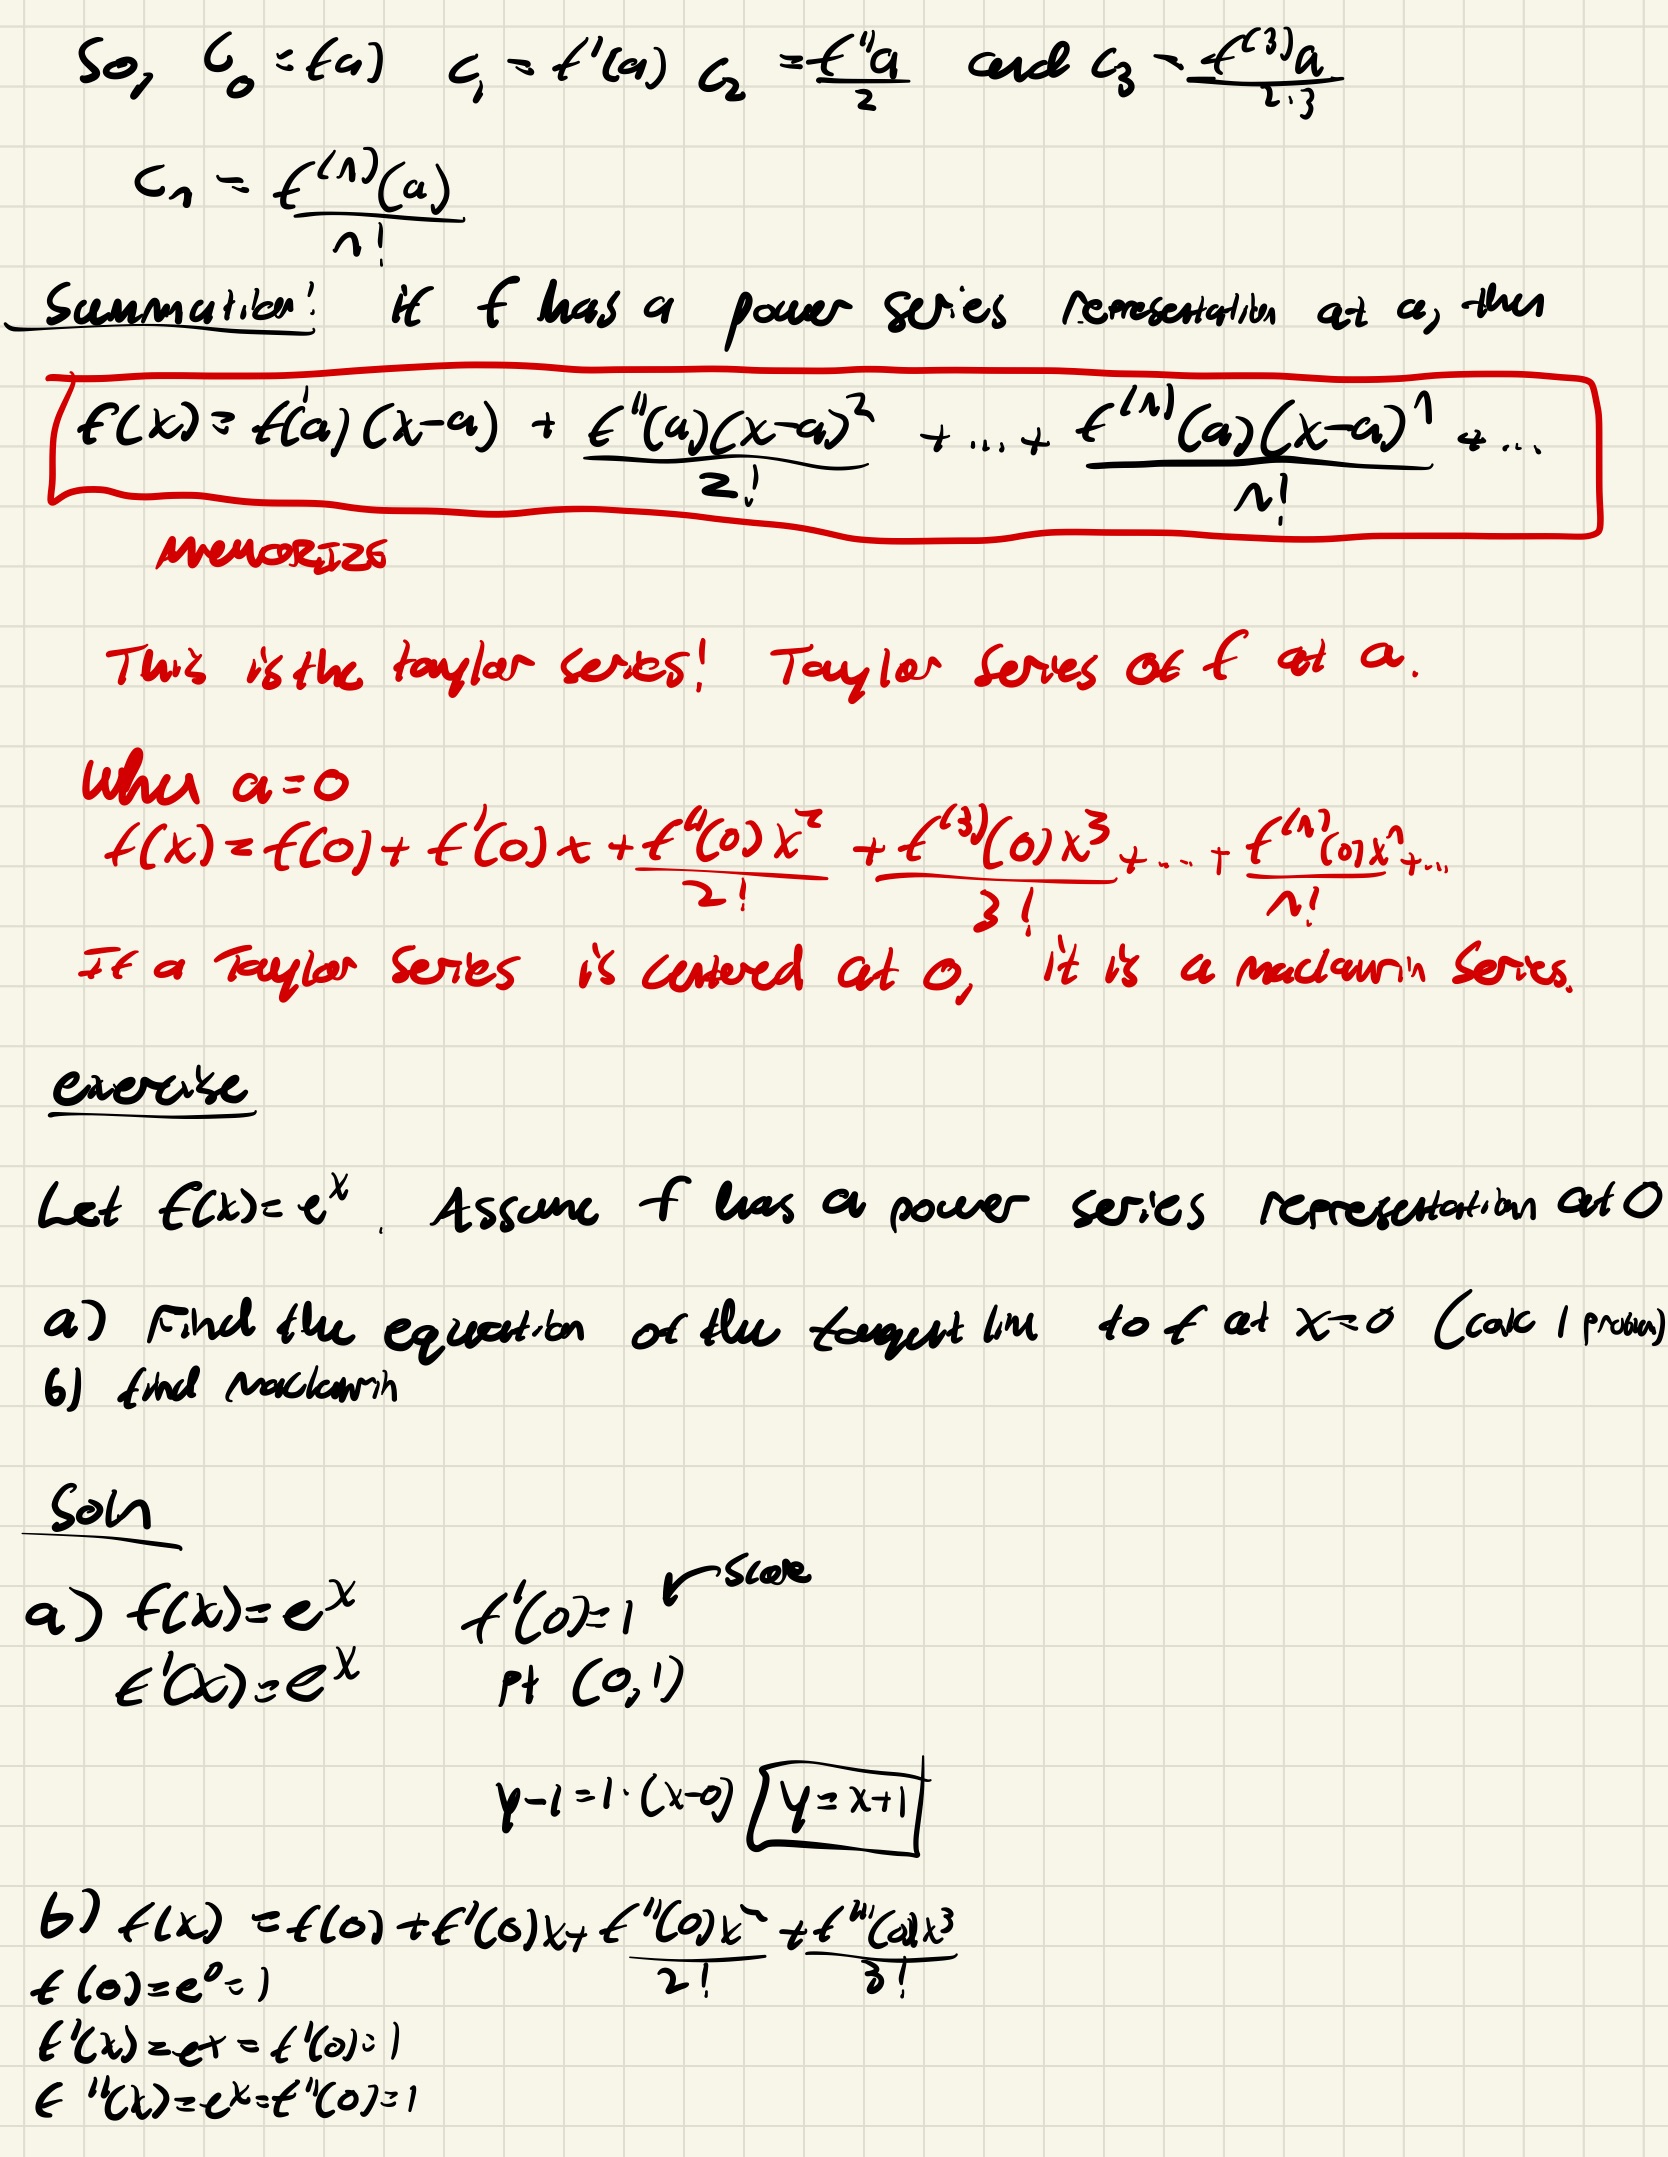 So, C₀ = f(a) C₁ = f'(a) C₂ = f''a/2 and C₃ = f⁽³⁾a/2·3
Cₙ = f⁽ⁿ⁾(a)/n!
Summation! if f has a power series representation at a, then
f(x) = f'(a)(x-a) + f''(a)(x-a)²/2! + ... + f⁽ⁿ⁾(a)(x-a)ⁿ/n! + ...
MEMORIZE
This is the taylor series! Taylor Series of f at a.
When a=0
f(x) = f(0) + f'(0)x + f''(0)x²/2! + f⁽³⁾(0)x³/3! + ... + f⁽ⁿ⁾(0)xⁿ/n! + ...
If a Taylor Series is centered at 0, it is a maclaurin Series.
exercise
Let f(x) = eˣ. Assume f has a power series representation at 0
a) Find the equation of the tangent line to f at x=0 (calc 1 problem)
b) find Maclaurin
Soln
a) f(x) = eˣ f'(0)=1 ↙ Slope
f'(x) = eˣ pt (0,1)
y-1=1·(x-0) y=x+1
b) f(x) = f(0) + f'(0)x + f''(0)x²/2! + f'''(0)x³/3!
f(0)=e⁰=1
f'(x)=eˣ=f'(0)=1
f''(x)=eˣ=f''(0)=1